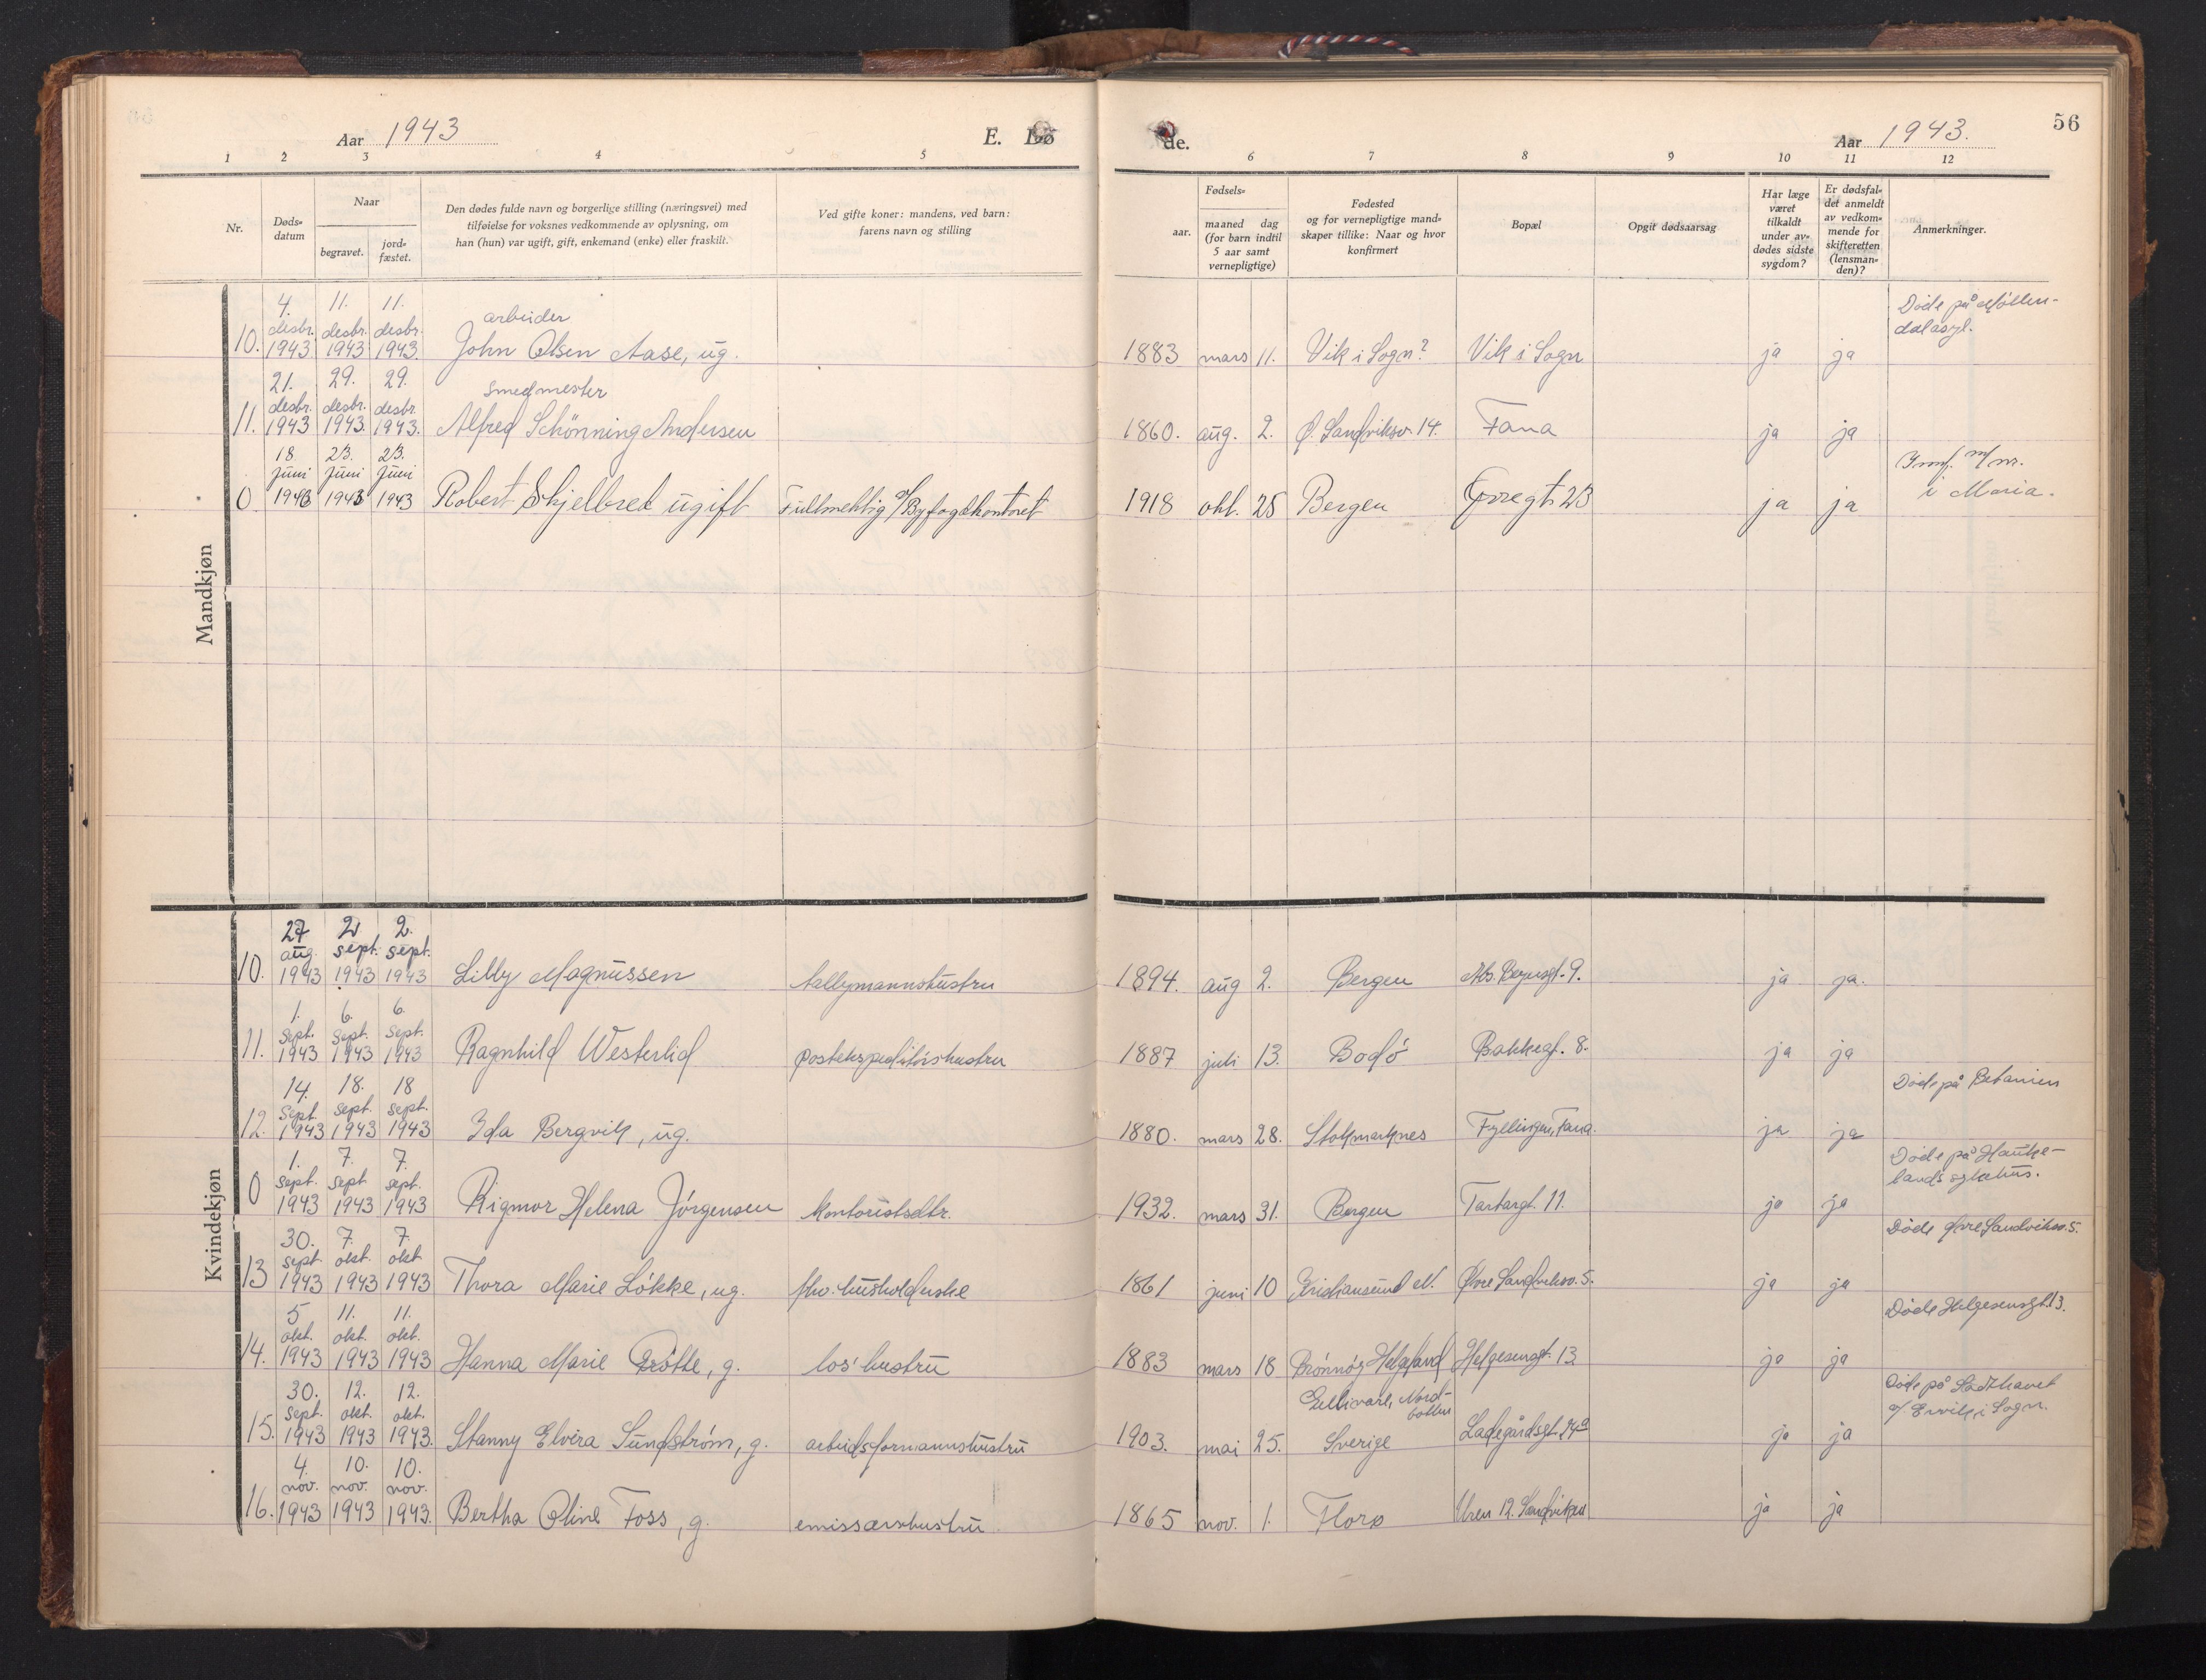 Aar 1943
E. Dø
de.
Aar 1943.
56
1 2 3 4 5 6 7 8 9 10 11 12
Nr.
Døds-
datum
Naar
begravet.
jord-
fæstet.
Den dødes fulde navn og borgerlige stilling (næringsvei) med
tilføielse for voksnes vedkommende av oplysning, om
han (hun) var ugift, gift, enkemand (enke) eller fraskilt.
Ved gifte koner: mandens, ved barn:
farens navn og stilling
Fødsels-
aar.
maaned dag
(for barn indtil
5 aar samt
vernepligtige)
Fødested
og for vernepligtige mand-
skaper tillike: Naar og hvor
konfirmert
Bopæl
Opgit dødsaarsag
Har læge
været
tilkaldt
under av-
dødes sidste
sygdom?
Er dødsfal-
det anmeldt
av vedkom-
mende for
skifteretten
(lensman-
den)?
Anmerkninger.
Mandkjøn
4. 11. 11. arbeider Døde på Møllen-
desbr. desbr. desbr. dalasyl.
10. 1943 1943 1943. John Olsen Aase, ug. 1883 mars 11. Vik i Sogn? Vik i Sogn ja ja
21. 29. 29. smedmester
desbr. desbr. desbr.
11. 1943 1943. 1943. Alfred Schönning Andersen 1860. aug. 2. Ø. Sandviksv. 14. Fana ja ja
18. 23. 23.
juni juni juni m/ nr.
0 1943 1943 1943 Robert Skjelbred ugift Fullmektig v/Byfogdkontoret 1918 okt. 25 Bergen Øvregt. 23 ja ja i Maria.
Kvindekjøn
27 2 2.
aug. sept. sept.
10. 1943 1943 1943 Lilly Magnussen tallymannshustru 1894. aug 2. Bergen Abs. Beyersgt. 9. ja ja.
1. 6. 6.
Sept. Sept. Sept.
11. 1943 1943 1943 Ragnhild Westerlid postekspeditørshustru 1887 juli 13. Bodó Bakkegt. 8. ja ja
14. 18. 18 Døde på Betanien
Sept. sept. sept.
12. 1943 1943 1943 Ida Bergvik, ug. 1880. mars 28. Stokmarknes Fyllingen, Fana. ja ja
1. 7. 7. Døde på Hauke-
sept. sept sept. lands sykehus.
0 1943 1943 1943 Rigmor Helena Jórgensen kontoristsdtr. 1932. mars 31. Bergen Tartargt. 11. ja ja
30. 7. 7. Døde Øvre Sandviksv. 5.
sept okt. okt
13 1943 1943 1943 Thora Marie Lókke, ug. fhv. husholderske 1861 juni 10 Kristiansund N. Øvre Sandviksv. 5. ja ja
5 11. 11. Døde Helgesensgt. 13.
okt. okt. okt.
14. 1943 1943 1943 Hanna Marie g. los' hustru 1883 mars 18 Brónnóy Helgeland Helgesensgt. 13 ja ja
30. 12. 12. Gellivare, Nord- Døde på Stadthavet
sept. okt. okt. botten v/ Ervik i Sogn.
15. 1943 1943 1943. Stanny Elvira Sundstróm, g. arbeidsformannshustru 1903. mai 25. Sverige Ladegårdsgt. ja ja
4. 10. 10.
nov. nov. nov.
16. 1943 1943 1943. Bertha Oline Foss, g. emissærshustru 1865 nov. 1. Florø Uren 12. Sandviken ja ja